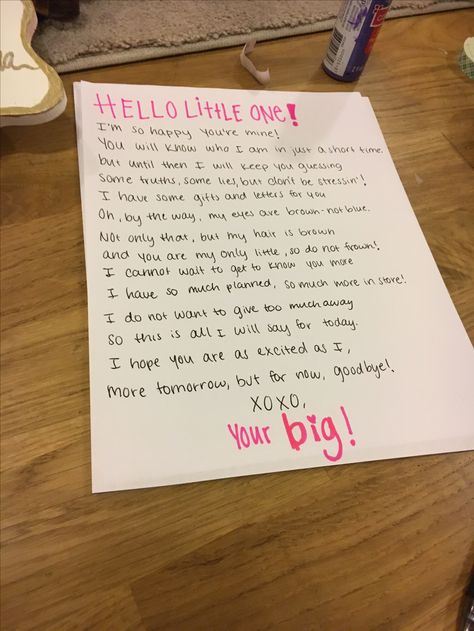 HELLO LITTLE ONE!
I'm so happy you're mine!
You will know who I am in just a short time.
but until then I will keep you guessing
Some truths, some lies, but don't be stressin'!
I have some gifts and letters for you
Oh, by the way, my eyes are brown-not blue.
Not only that, but my hair is brown
and you are my only little, so do not frown!
I cannot wait to get to know you more
I have so much planned, so much more in store!
I do not want to give too much away
So this is all I will say for today.
I hope you are as excited as I,
More tomorrow, but for now, goodbye!
XOXO,
Your big!